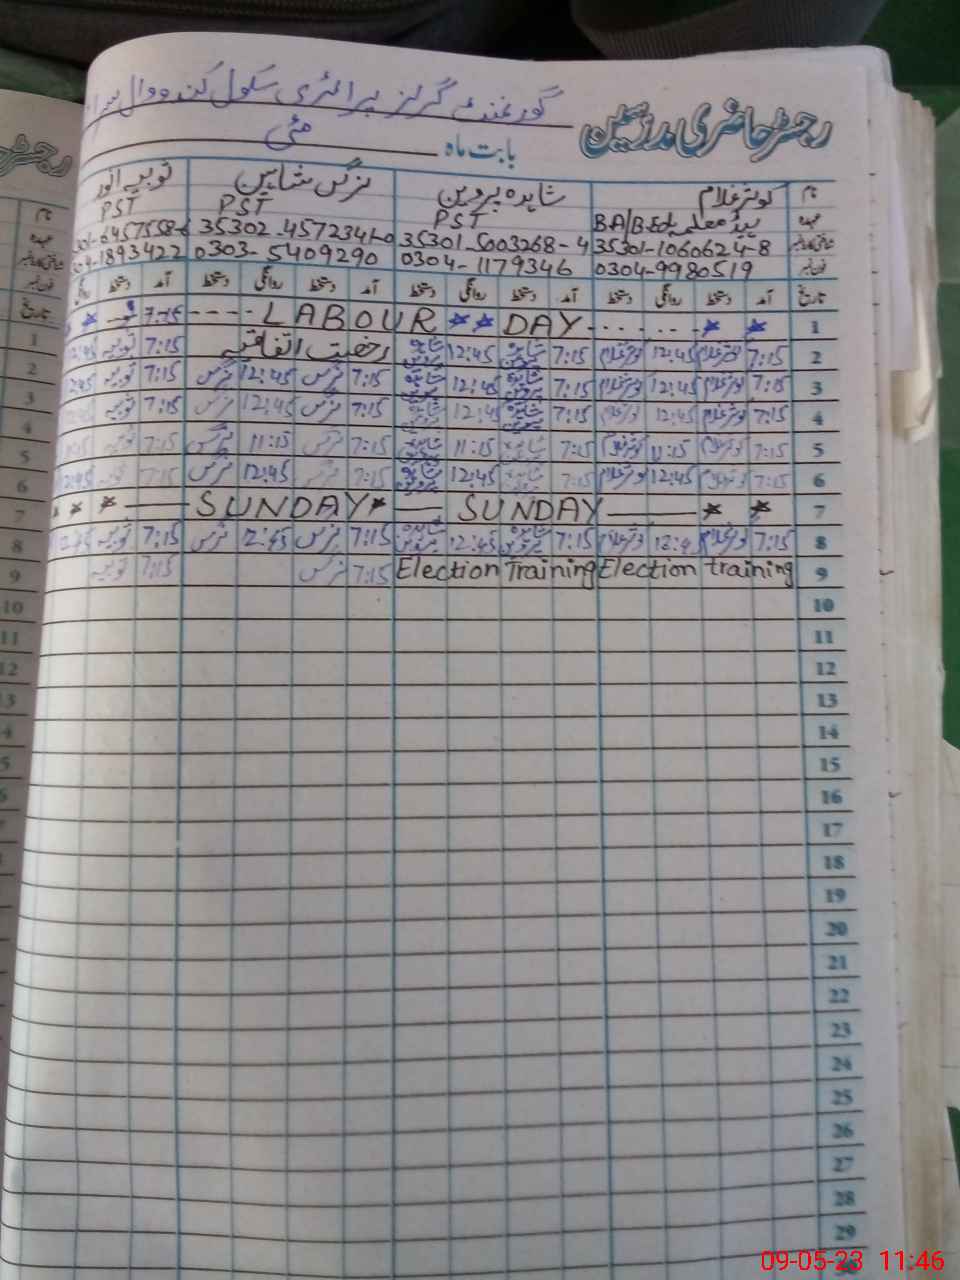 رجسٹر حاضری مدرسین گورنمنٹ گرلز پرائمری سکول
بابت ماہ مئی
نام کوثر غلام شاہدہ پروین نرگس شاہین ثوبیہ انور
عہدہ BA/B.Ed ہیڈ معلمہ PST PST PST
35301-1060624-8 35301-5003268-4 35302-4572341-0
فون نمبر 0304-9980519 0304-1179346 0303-5409290 1893422
تاریخ آمد دستخط روانگی دستخط آمد دستخط روانگی دستخط آمد دستخط روانگی دستخط آمد دستخط روانگی
1 ----LABOUR ** DAY------* * 7:15
2 7:15 کوثر غلام 12:45 کوثر غلام 7:15 شاہدہ پروین 12:45 شاہدہ پروین رخصت اتفاقیہ 7:15 ثوبیہ 12:45
3 7:15 کوثر غلام 12:45 کوثر غلام 7:15 شاہدہ پروین 12:45 شاہدہ پروین 7:15 نرگس 12:45 نرگس 7:15 ثوبیہ 12:45
4 7:15 کوثر غلام 12:45 کوثر غلام 7:15 شاہدہ پروین 12:45 شاہدہ پروین 7:15 نرگس 12:45 نرگس 7:15 ثوبیہ 12:45
5 7:15 کوثر غلام 11:15 کوثر غلام 7:15 شاہدہ 11:15 شاہدہ پروین 7:15 نرگس 11:15 نرگس 7:15 ثوبیہ 11:15
6 7:15 کوثر غلام 12:45 کوثر غلام 7:15 شاہدہ پروین 12:45 شاہدہ پروین 7:15 نرگس 12:45 نرگس 7:15 ثوبیہ 12:45
7 * * * —— SUNDAY* —— SUNDAY —— * *
8 7:15 کوثر غلام 12:45 کوثر غلام 7:15 شاہدہ پروین 12:45 شاہدہ پروین 7:15 نرگس 12:45 نرگس 7:15 ثوبیہ 12:45
9 Election Training Election training 7:15 نرگس 7:15 ثوبیہ
10
11
12
13
14
15
16
17
18
19
20
21
22
23
24
25
26
27
28
29
09-05-23 11:46